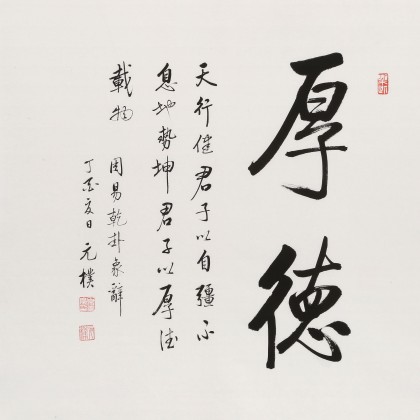 厚德
天行健君子以自彊不
息地勢坤君子以厚德
載物 周易乾卦象辭
丁酉夏日元樸